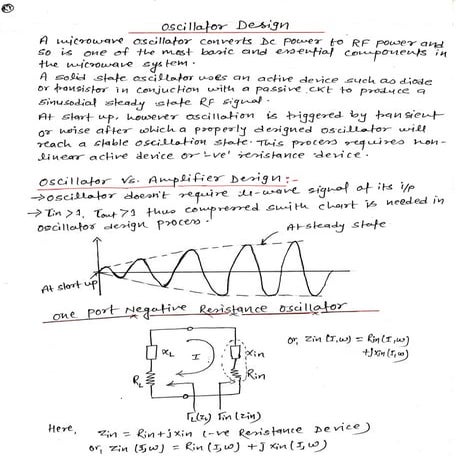 Oscillator Design
A microwave oscillator converts Dc power to RF power and
so is one of the most basic and essential components in
the microwave system.
A solid state oscillator uses an active device such as diode
or transistor in conjuction with a passive CKT to produce a
sinusodial steady state RF signal.
At start up, however oscillation is triggered by transient
or noise after which a properly designed oscillator will
reach a stable oscillation state. This process requires non-
linear active device or '-ve' resistance device.
Oscillator Vs. Amplifier Design:-
→ Oscillator doesn't require μ-wave signal at its i/p
→ Γin > 1, Γout > 1 thus compressed smith chart is needed in
oscillator design process.
At steady state
At start up
one Port Negative Resistance Oscillator
XL I Xin
RL Rin
ΓL(ZL) Γin(Zin)
or, Zin (I,ω) = Rin(I,ω)
+jXin(I,ω)
Here, Zin = Rin+jXin (-ve Resistance Device)
or, Zin (I,ω) = Rin(I,ω) + jXin(I,ω)